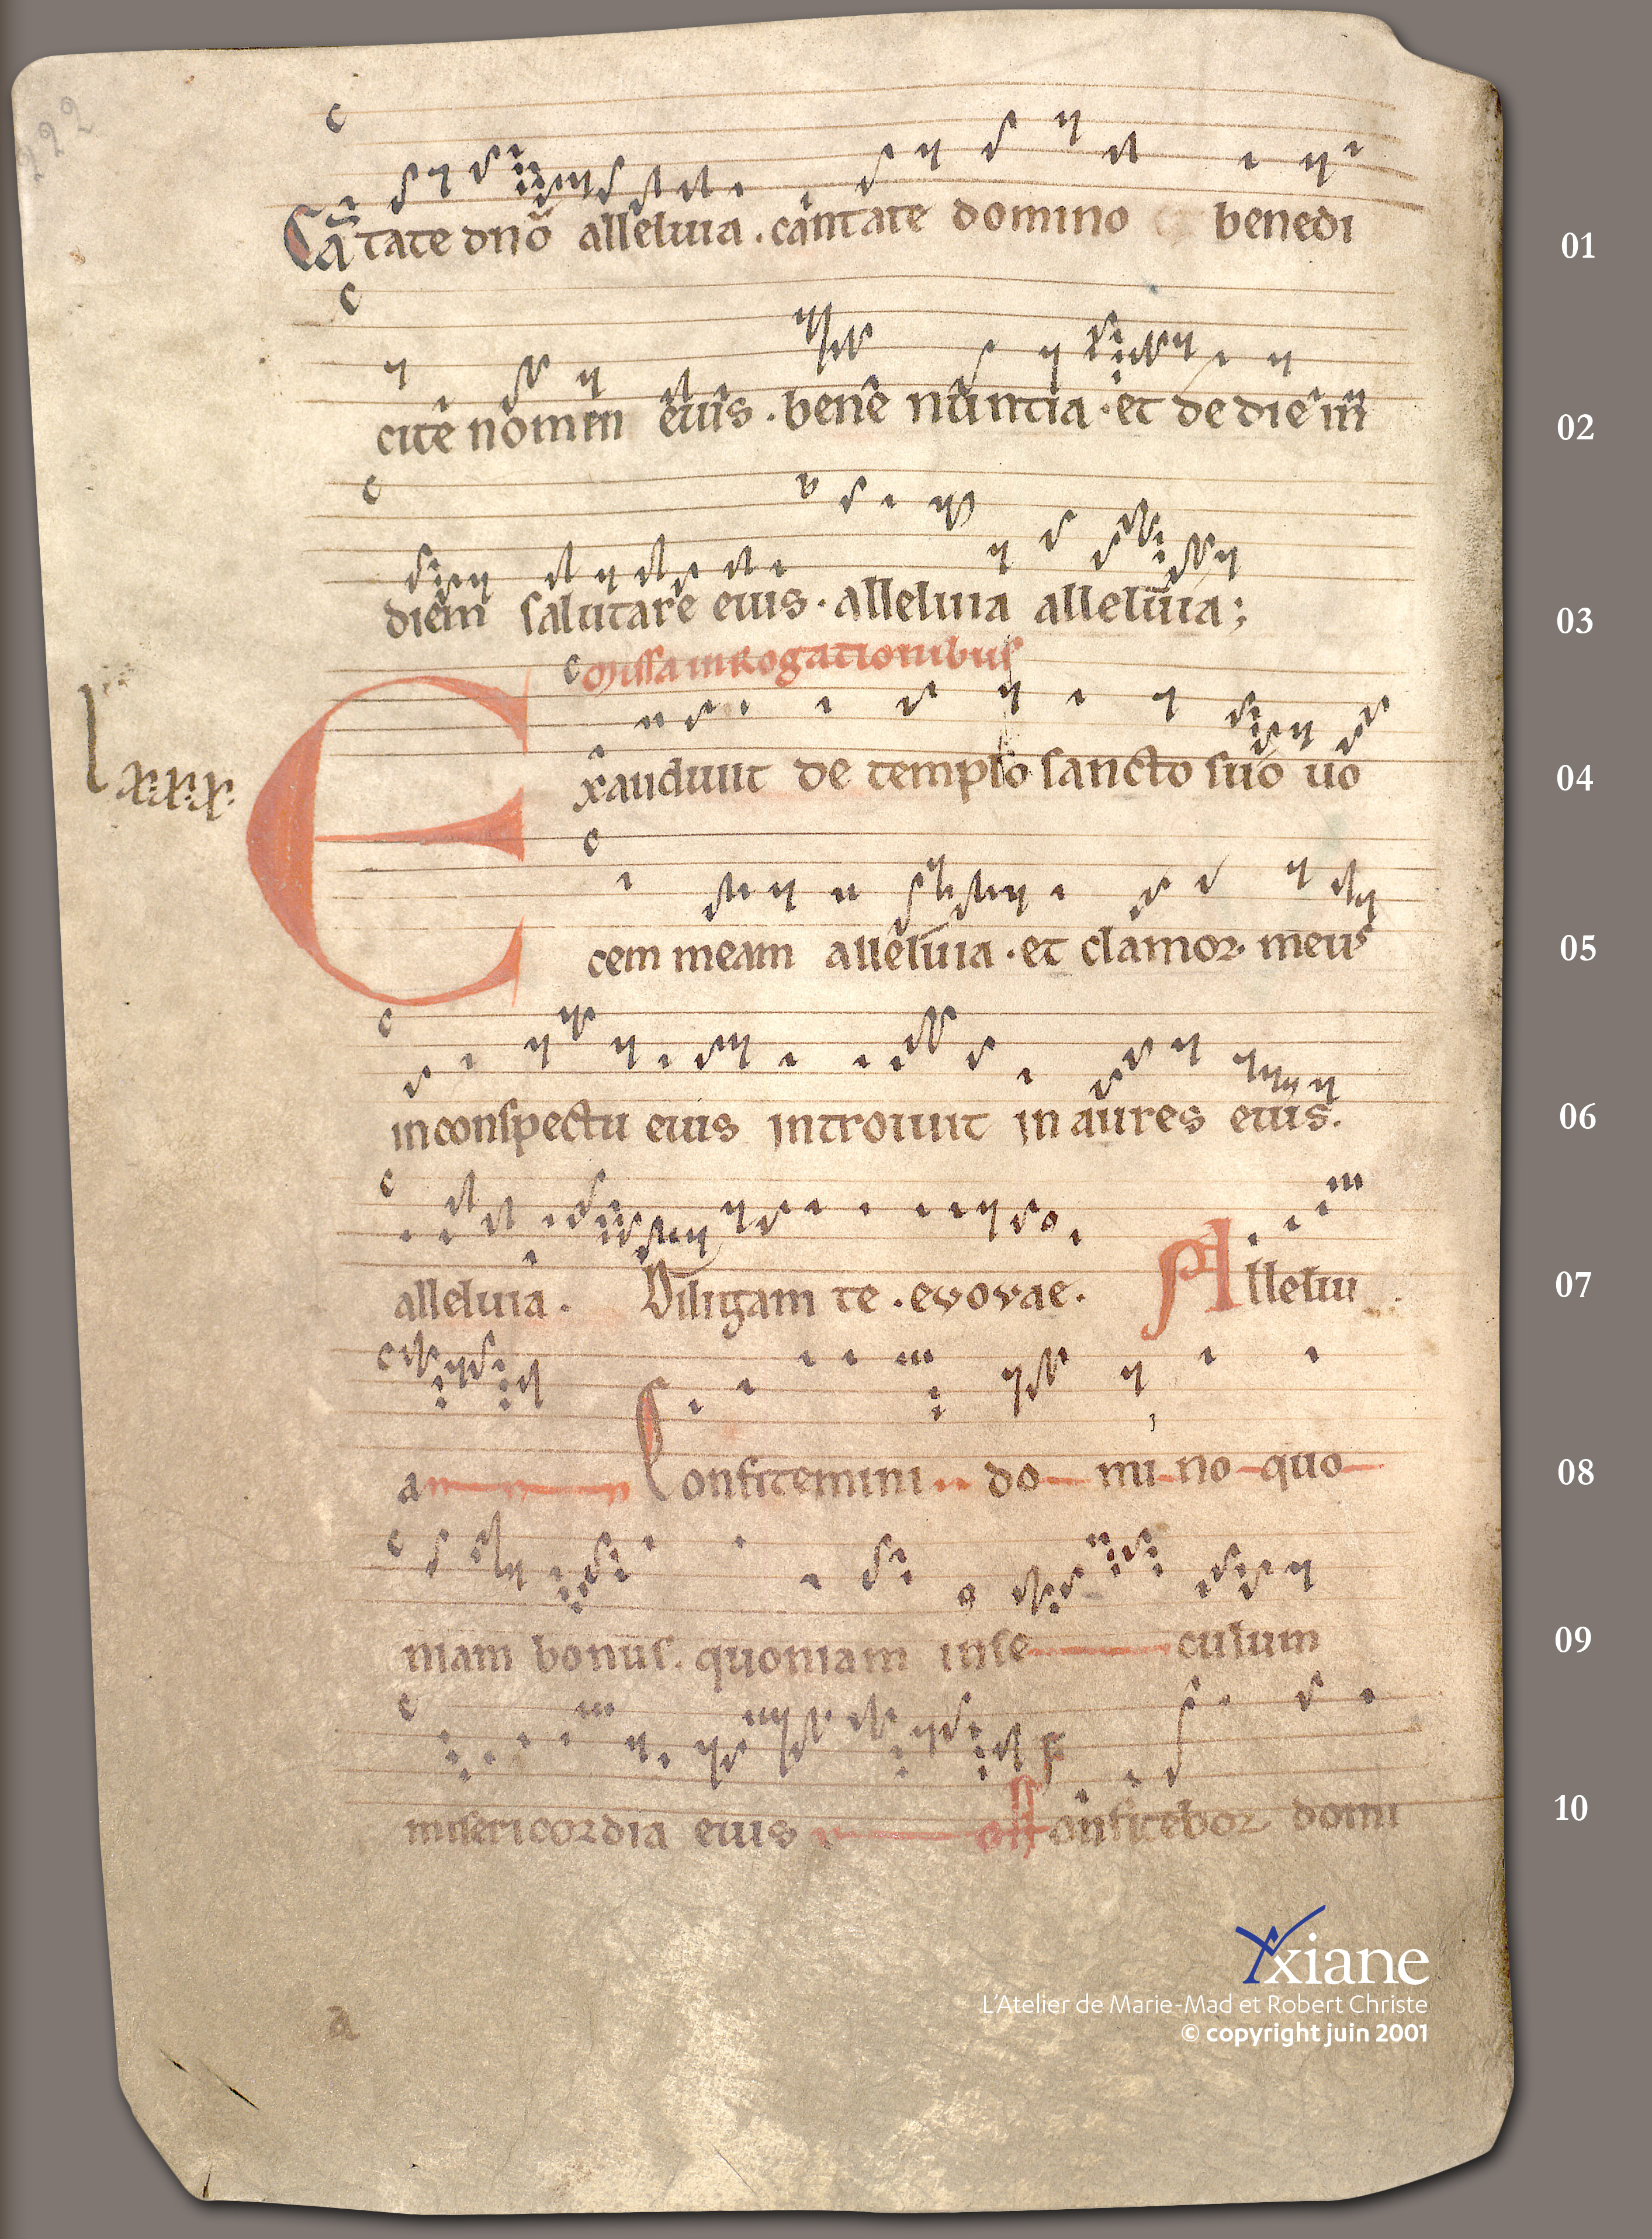 222
Cātate dn̄o alleluia . cantate domino benedi
01
cite nomen eius . bene nuntia . et de die in
02
diem salutare eius . alleluia alleluia ;
03
Missa in Rogationibus
lxxx
Exaudiuit de templo sancto suo uo
04
cem meam alleluia . et clamor meus
05
in conspectu eius introiuit in aures eius .
06
alleluia . Diligam te . evovae . Alleluu
07
a Confitemini do mi no quo
08
niam bonus . quoniam inse culum
09
misericordia eius off onfitebor domi
10
Yxiane
L'Atelier de Marie-Mad et Robert Christe
© copyright juin 2001
a